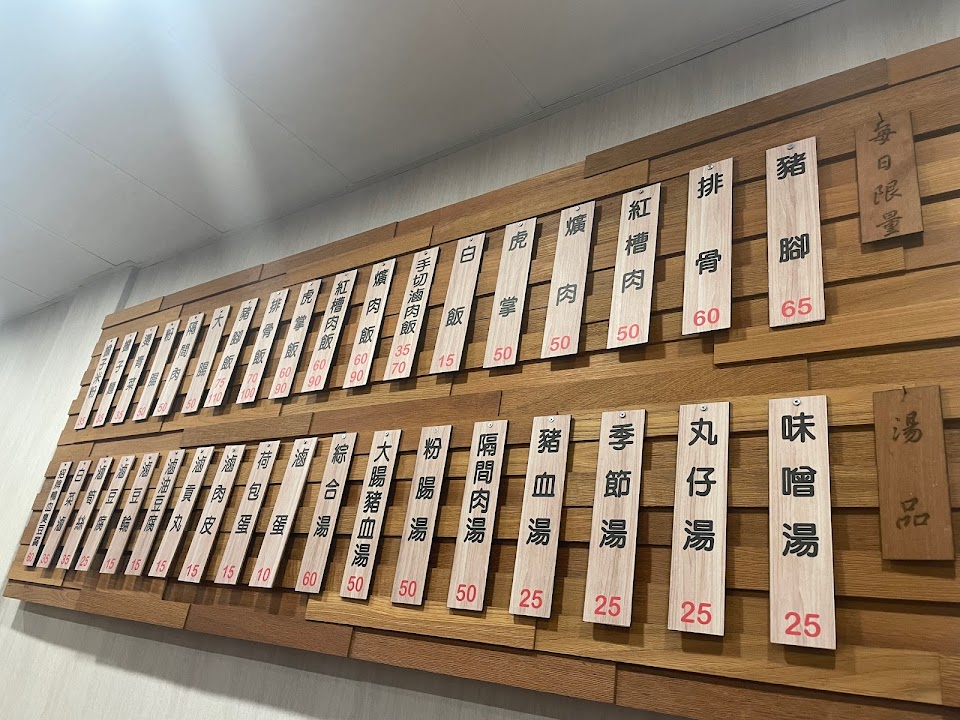 每日限量
豬腳 65
排骨 60
紅槽肉 50
爌肉 50
虎掌 50
白飯 15
手切滷肉飯 35 70
爌肉飯 60 90
紅槽肉飯 60 90
虎掌飯 60 90
排骨飯 70 100
豬腳飯 75 110
大腸 50
隔間肉 50
粉腸 50
燙青菜 50
湯品
味噌湯 25
丸仔湯 25
季節湯 25
豬血湯 25
隔間肉湯 50
粉腸湯 50
大腸豬血湯 50
綜合湯 60
滷蛋 10
荷包蛋 15
滷肉皮 15
滷貢丸 15
滷油豆腐 15
滷豆輪 15
滷豆腐 15
筍絲 25
白菜滷 35